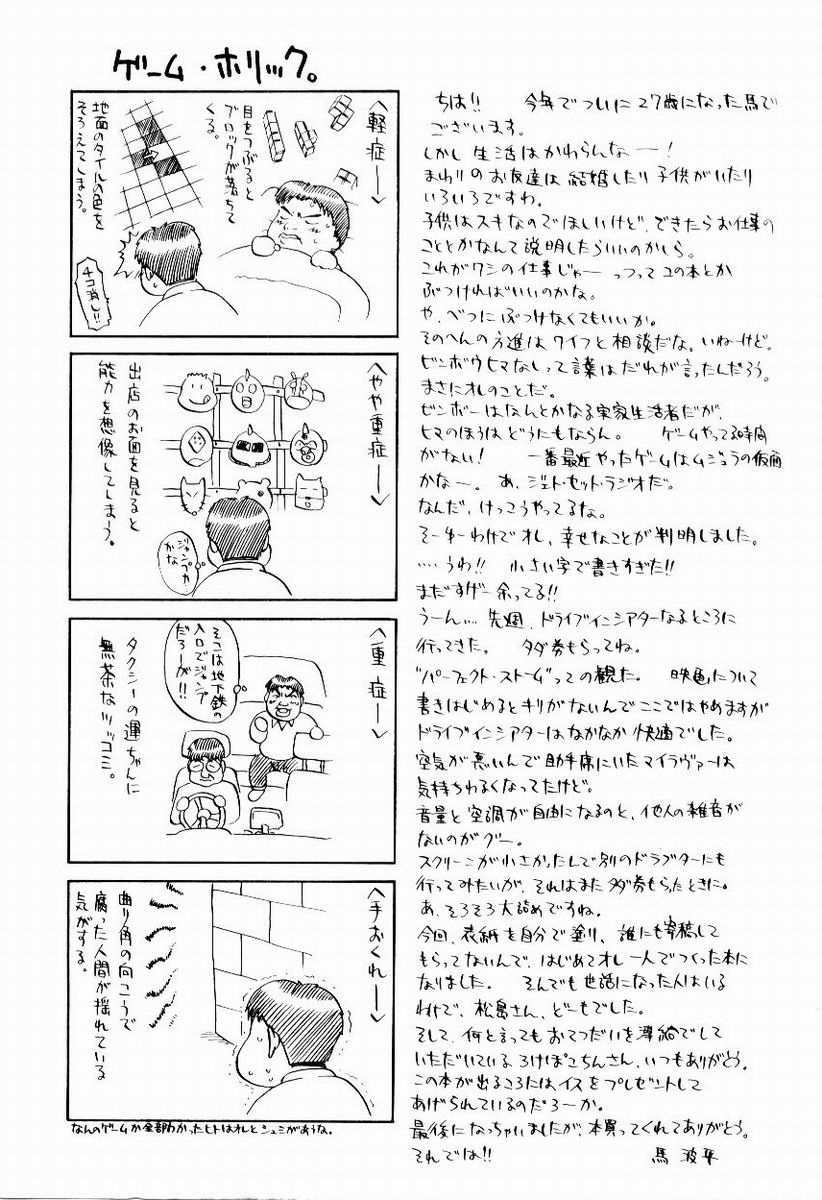 ゲーム・ホリック。
<軽症>
目をつぶると
ブロックが落ちて
くる。
地面のタイルの色を
そろえてしまう。
チコ消し!!
<やや重症>
出店のお面を見ると
能力を想像してしまう。
ジャンプカ
かな
<重症>
そこは地下鉄の
入口でジャンプ
だろーが!!
タクシーの運ちゃんに
無茶なツッコミ。
<手おくれ>
曲り角の向こうで
腐った人間が揺れている
気がする。
なんのゲームか全部わかったヒトはオレとシュミがあうな。
ちは!! 今年でついに27歳になった馬で
ございます。
しかし生活はかわらんなー!
まわりのお友達は結婚したり子供がいたり
いろいろですわ。
子供はスキなのでほしいけど、できたらお仕事の
こととかなんて説明したらいいのかしら。
これがワシの仕事じゃー っつってコの本とか
ぶつければいいのかな。
や、べつにぶつけなくてもいいか。
そのへんの方進はワイフと相談だな。いねーけど。
ビンボウヒマなしって言葉はだれが言ったんだろう。
まさにオレのことだ。
ビンボーはなんとかなる実家生活者だが、
ヒマのほうはどうにもならん。 ゲームやってる時間
がない! 一番最近やったゲームはムジュラの仮面
かなー。 あ、ジェト・セット・ラジオだ。
なんだ、けっこうやってるな。
そーゆーわけでオレ、幸せなことが判明しました。
‥‥うわ!! 小さい字で書きすぎた!!
まだすげー余ってる!!
うーん‥‥先週、ドライブインシアターなるところに
行ってきた。 タダ券もらってね。
"パーフェクト・ストーム"っての観た。 映画について
書きはじめるとキリがないんでここではやめますが
ドライブインシアターはなかなか快適でした。
空気が悪いんで助手席にいたマイラヴァーは
気持ちわるくなってたけど。
音量と空調が自由になるのと、他人の雑音が
ないのがグー。
スクリーンが小さかったしで別のドラブターにも
行ってみたいが、それはまたタダ券もらたときに。
あ、そろそろ大詰めですね。
今回、表紙を自分で塗り、誰にも寄稿して
もらってないんで、はじめてオレ一人でつくった本に
なりました。 そんでも世話になった人はいる
わけで、松島さん、どーもでした。
そして、何と言ってもおてつだいを薄給でして
いただいている ろけぽこちんさん、いつもありがとう。
この本が出るころにはイスをプレゼントして
あげられているのだろーか。
最後になっちゃいましたが、本買ってくれてありがとう。
それでは!! 馬 波平